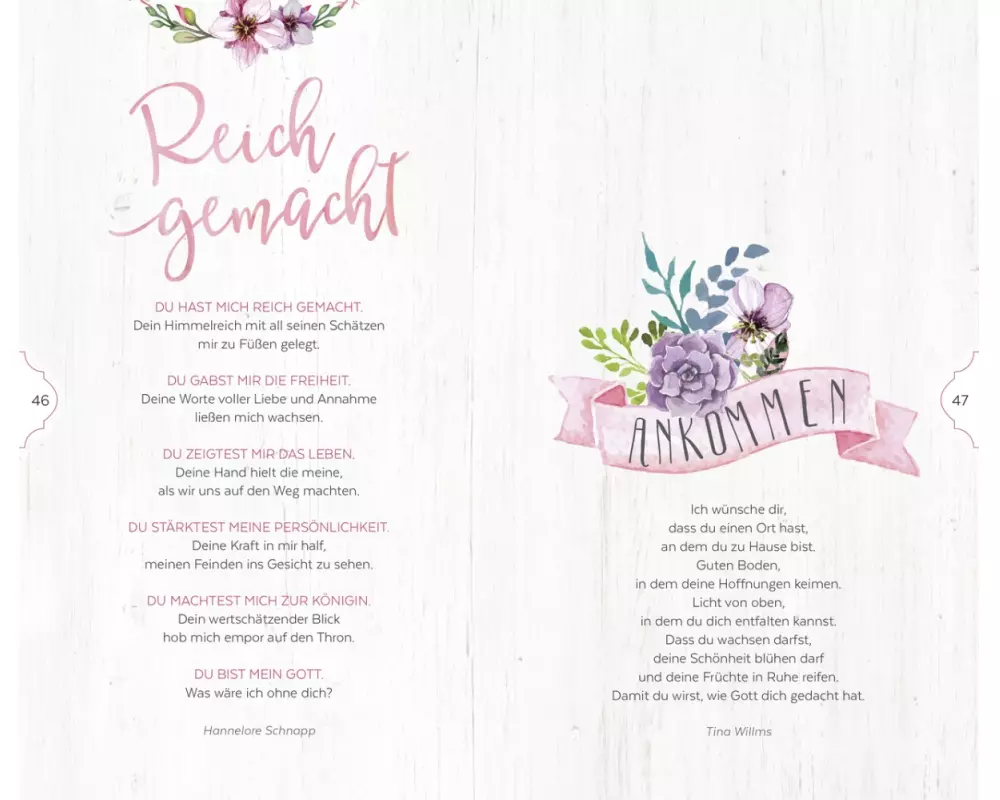 Reich
gemacht
DU HAST MICH REICH GEMACHT.
Dein Himmelreich mit all seinen Schätzen
mir zu Füßen gelegt.
DU GABST MIR DIE FREIHEIT.
Deine Worte voller Liebe und Annahme
ließen mich wachsen.
DU ZEIGTEST MIR DAS LEBEN.
Deine Hand hielt die meine,
als wir uns auf den Weg machten.
DU STÄRKTEST MEINE PERSÖNLICHKEIT.
Deine Kraft in mir half,
meinen Feinden ins Gesicht zu sehen.
DU MACHTEST MICH ZUR KÖNIGIN.
Dein wertschätzender Blick
hob mich empor auf den Thron.
DU BIST MEIN GOTT.
Was wäre ich ohne dich?
Hannelore Schnapp
46
ANKOMMEN
Ich wünsche dir,
dass du einen Ort hast,
an dem du zu Hause bist.
Guten Boden,
in dem deine Hoffnungen keimen.
Licht von oben,
in dem du dich entfalten kannst.
Dass du wachsen darfst,
deine Schönheit blühen darf
und deine Früchte in Ruhe reifen.
Damit du wirst, wie Gott dich gedacht hat.
Tina Willms
47